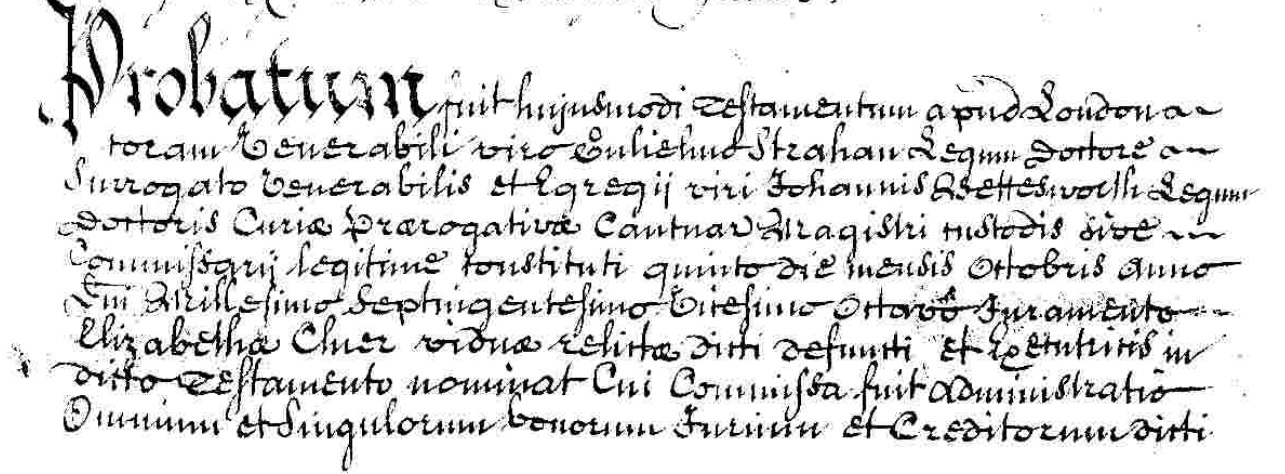 Probatum fuit hujusmodi Testamentum apud London
coram Venerabili viro Gulielmo Strahan Legum Doctore
Surrogato Venerabilis et Egregii viri Johannis Bettesworth Legum
Doctoris Curiæ Prærogativæ Cantuar Magistri Custodis sive
Commissarij legitime constituti quinto die mensis Octobris Anno
Dni Millesimo Septingentesimo Vicesimo Octavo Juramento
Elizabethæ Cluer viduæ relictæ dicti defuncti et Executricis in
dicto Testamento nominat Cui Commissa fuit Administratio
Omnium et Singulorum bonorum Jurium et Creditorum dicti